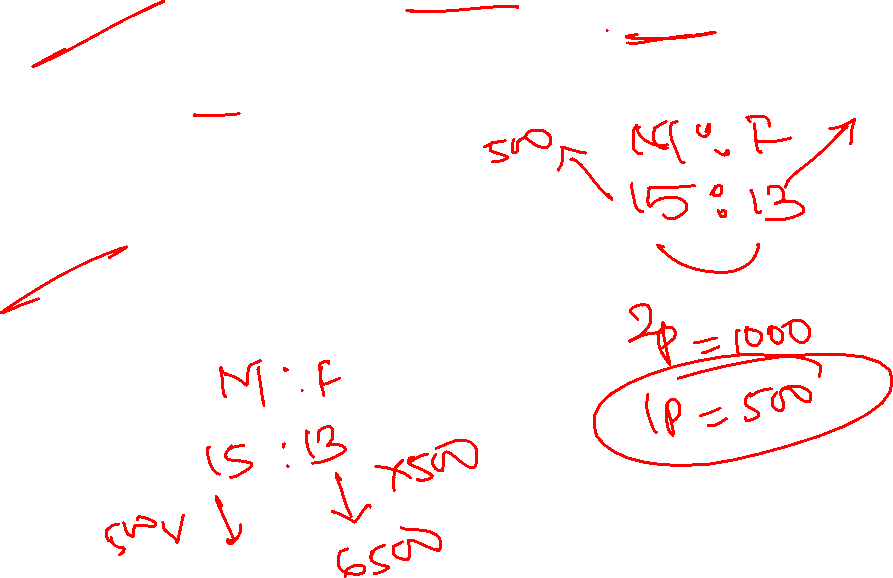 500 M : F
15 : 13
2p = 1000
1p = 500
M : F
15 : 13 x500
500
6500